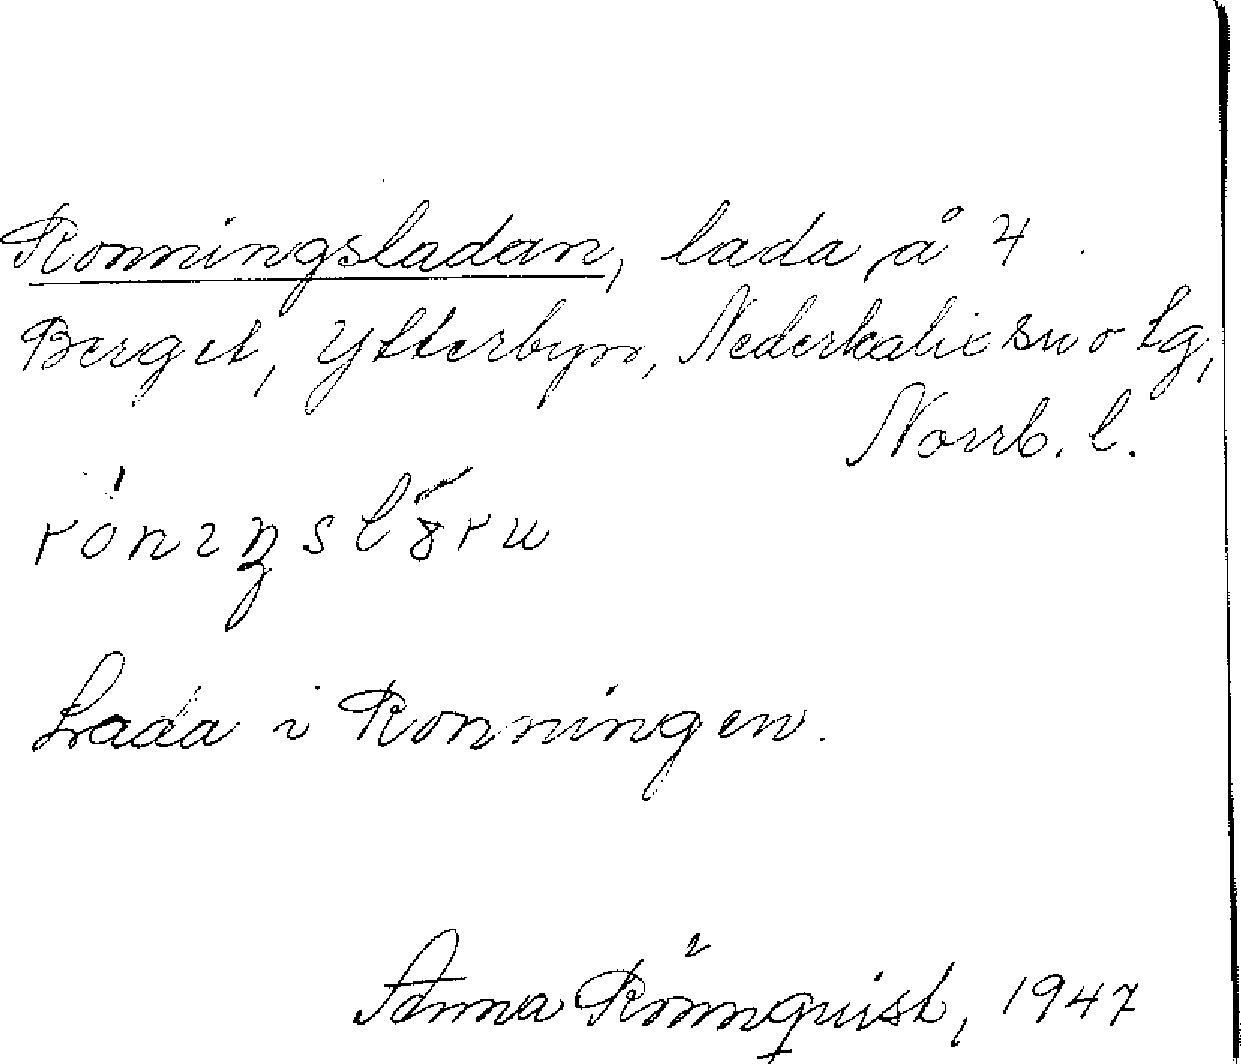 Ronningsladan, lada å 4
Berget, Ytterbyn, Nederkalix sn o tg,
Norrb. l.
Lada i Ronningen.
Anna Rönnquist, 1947